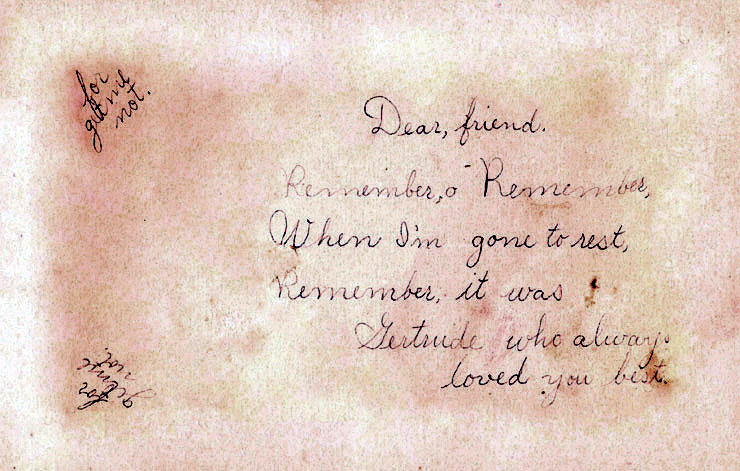 for
get me
not.
Dear, friend.
Remember, o Remember,
When I'm gone to rest,
Remember, it was
Gertrude who always
loved you best.
for
get me
not.